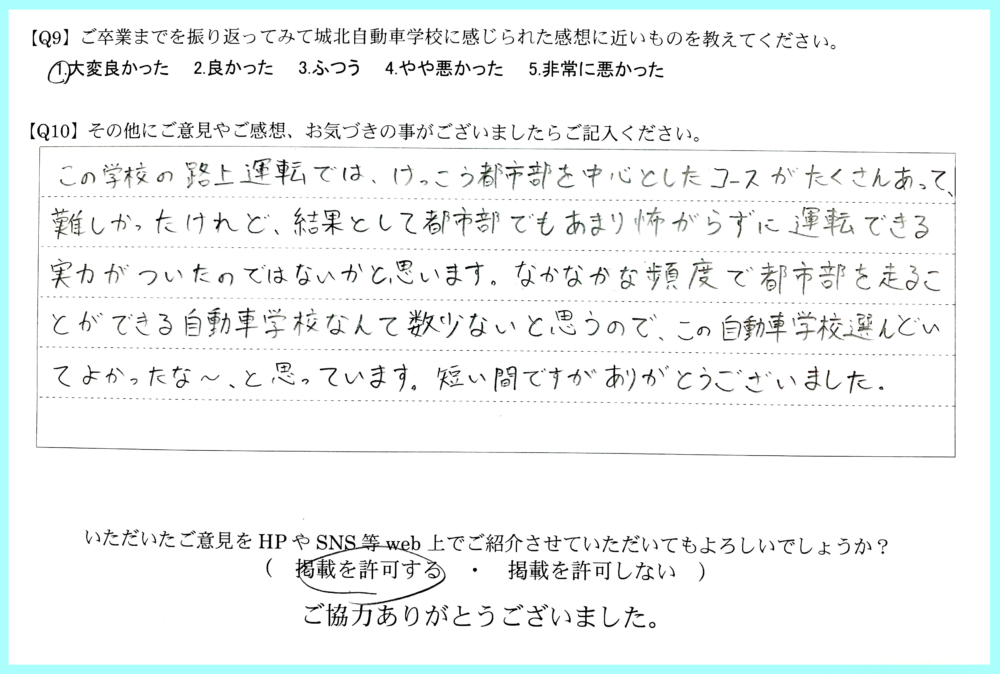 【Q9】ご卒業までを振り返ってみて城北自動車学校に感じられた感想に近いものを教えてください。
1.大変良かった 2.良かった 3.ふつう 4.やや悪かった 5.非常に悪かった
【Q10】その他にご意見やご感想、お気づきの事がございましたらご記入ください。
この学校の路上運転では、けっこう都市部を中心としたコースがたくさんあって、
難しかったけれど、結果として都市部でもあまり怖がらずに運転できる
実力がついたのではないかと思います。なかなかな頻度で都市部を走るこ
とができる自動車学校なんて数少ないと思うので、この自動車学校選んどい
てよかったな〜、と思っています。短い間ですがありがとうございました.
いただいたご意見をHPやSNS等web上でご紹介させていただいてもよろしいでしょうか?
( 掲載を許可する ・ 掲載を許可しない )
ご協力ありがとうございました。